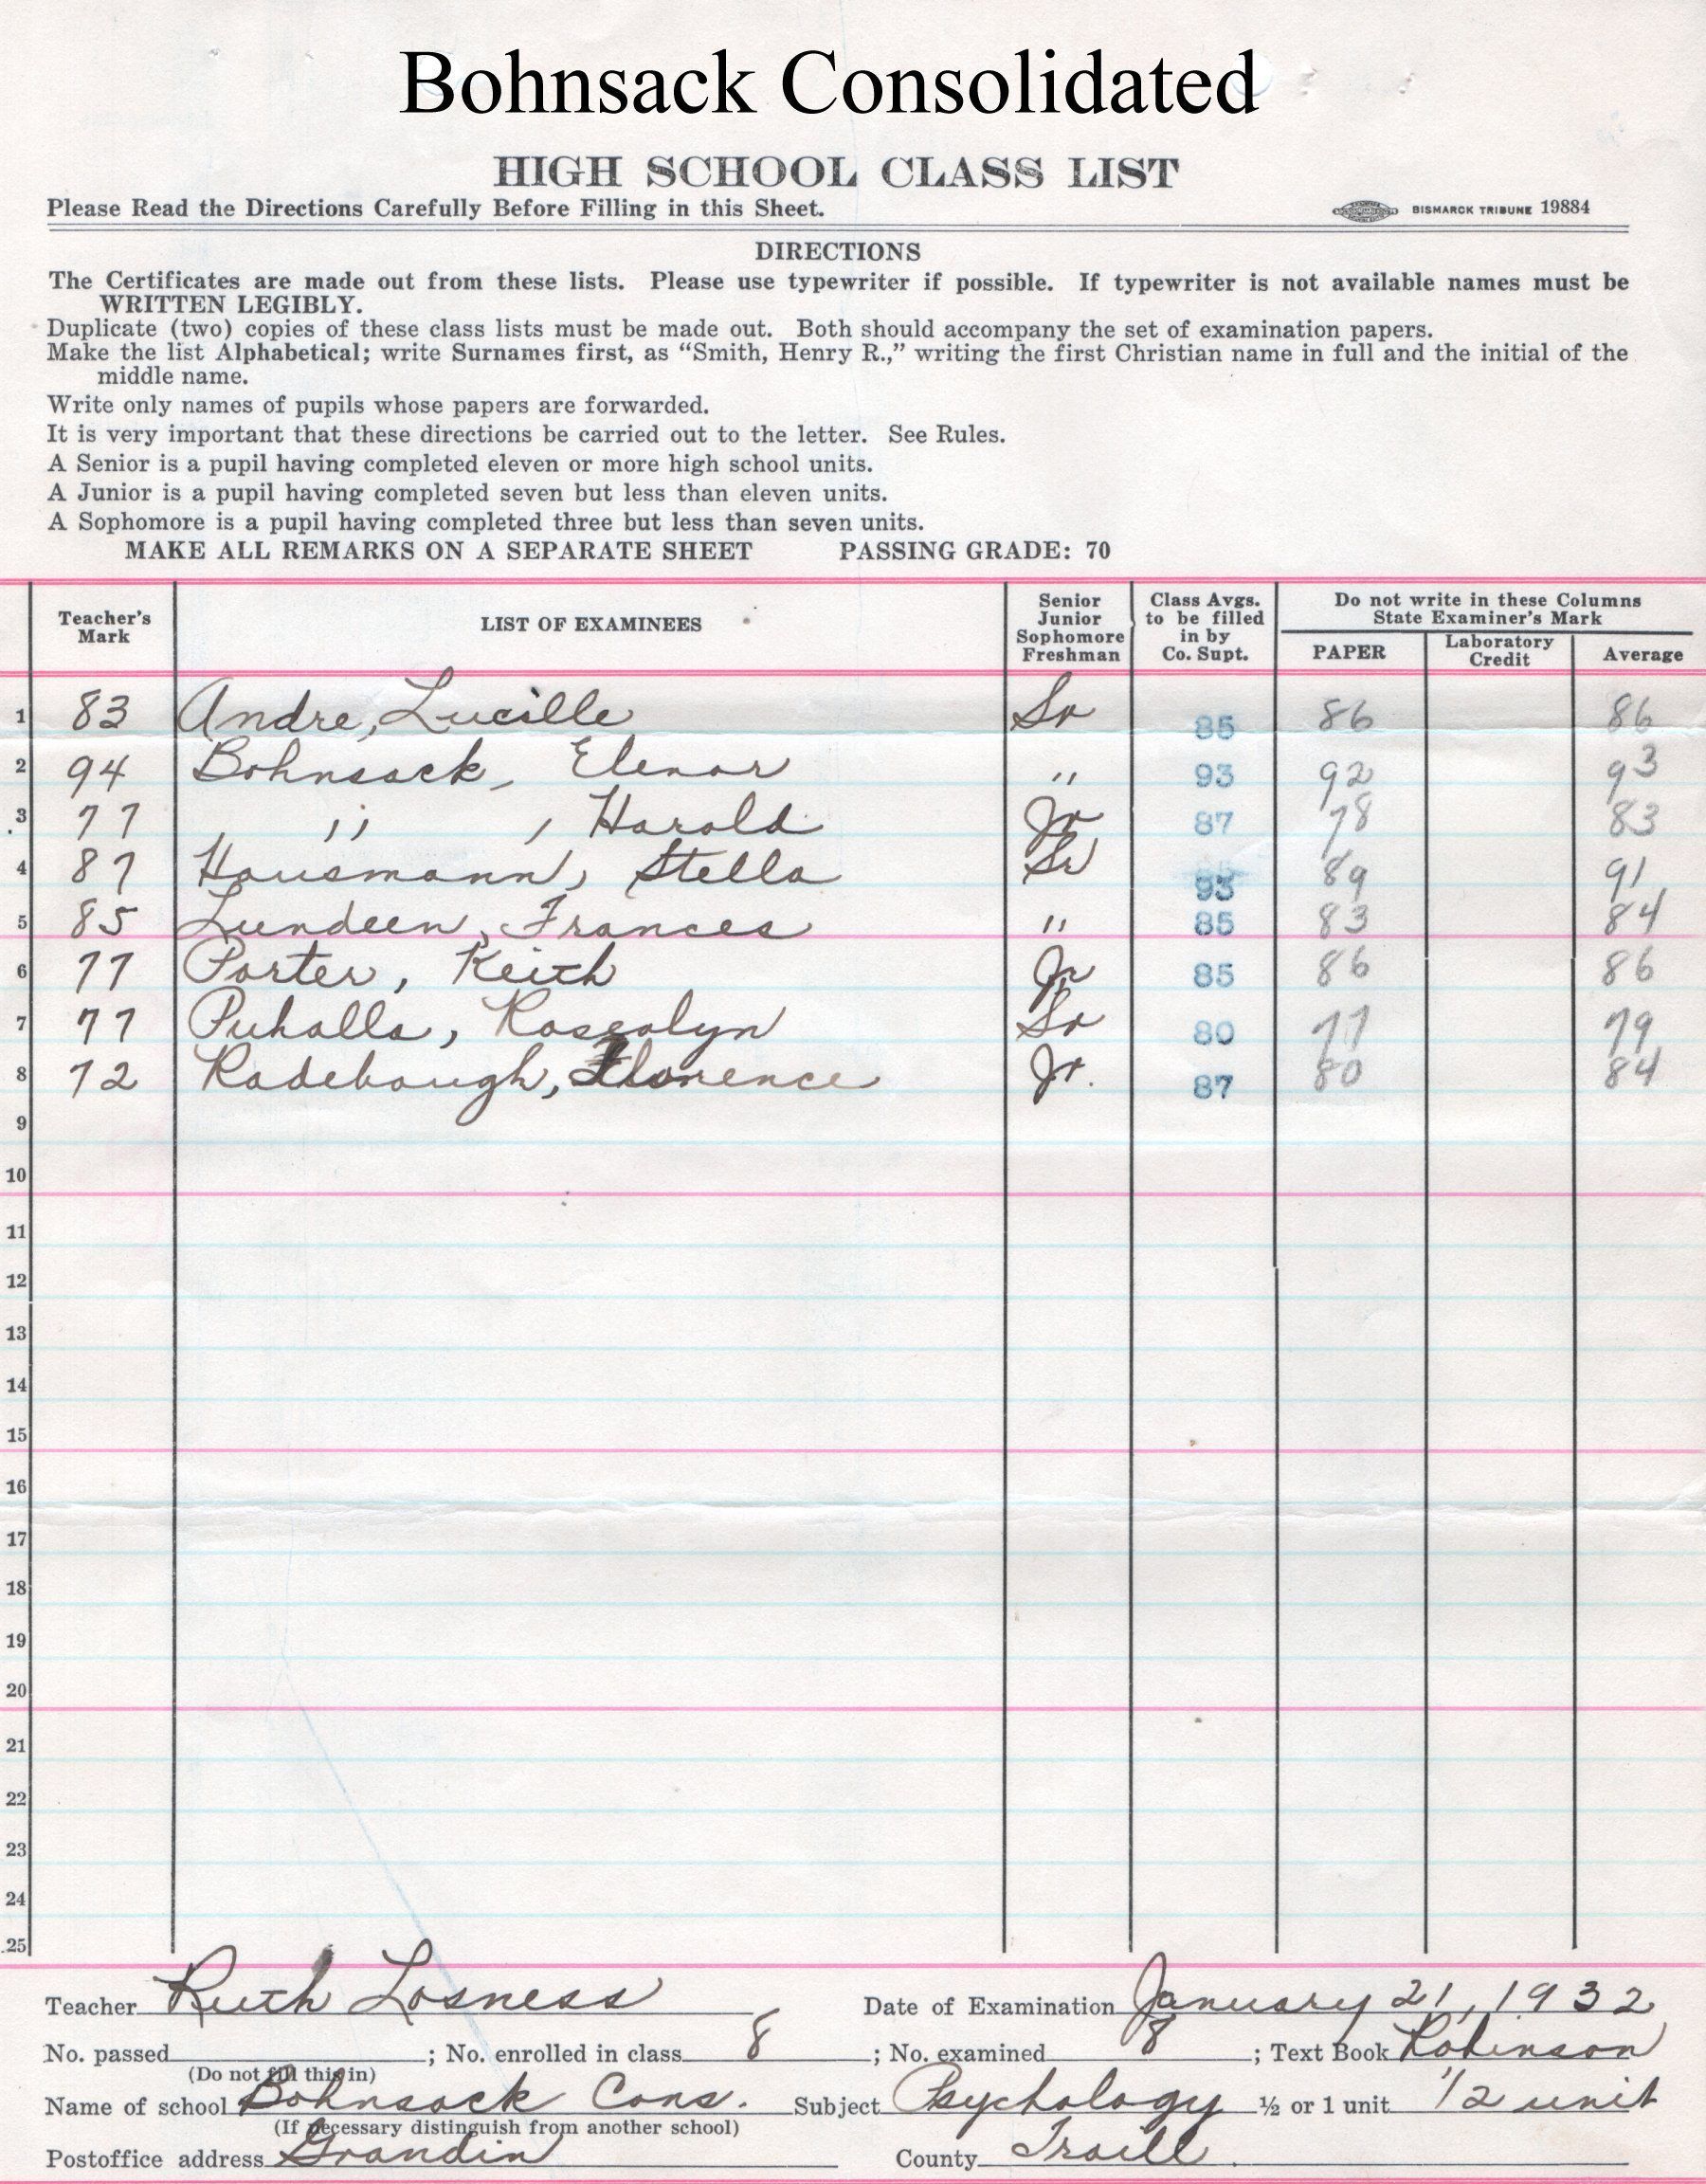 Bohnsack Consolidated
HIGH SCHOOL CLASS LIST
Please Read the Directions Carefully Before Filling in this Sheet. BISMARCK TRIBUNE 19884
DIRECTIONS
The Certificates are made out from these lists. Please use typewriter if possible. If typewriter is not available names must be
WRITTEN LEGIBLY.
Duplicate (two) copies of these class lists must be made out. Both should accompany the set of examination papers.
Make the list Alphabetical; write Surnames first, as “Smith, Henry R.,” writing the first Christian name in full and the initial of the
middle name.
Write only names of pupils whose papers are forwarded.
It is very important that these directions be carried out to the letter. See Rules.
A Senior is a pupil having completed eleven or more high school units.
A Junior is a pupil having completed seven but less than eleven units.
A Sophomore is a pupil having completed three but less than seven units.
MAKE ALL REMARKS ON A SEPARATE SHEET PASSING GRADE: 70
Teacher's Mark LIST OF EXAMINEES Senior Junior Sophomore Freshman Class Avgs. to be filled in by Co. Supt. Do not write in these Columns State Examiner's Mark PAPER Laboratory Credit Average
1 83 Andre, Lucille Sr 85 86 86
2 94 Bohnsack, Elenor " 93 92 93
3 77 " , Harold Jr 87 78 83
4 87 Hausmann, Stella Sr 93 89 91
5 85 Lundeen, Frances " 85 83 84
6 77 Porter, Keith Jr 85 86 86
7 77 Puhalla, Roseolyn Sr 80 77 79
8 72 Radebaugh, Florence Jr. 87 80 84
9
10
11
12
13
14
15
16
17
18
19
20
21
22
23
24
25
Teacher Ruth Losness Date of Examination January 21, 1932
No. passed ; No. enrolled in class 8 ; No. examined 8 ; Text Book Robinson
(Do not fill this in)
Name of school Bohnsack Cons. Subject Psychology ½ or 1 unit 1/2 unit
(If necessary distinguish from another school)
Postoffice address Grandin County Traill